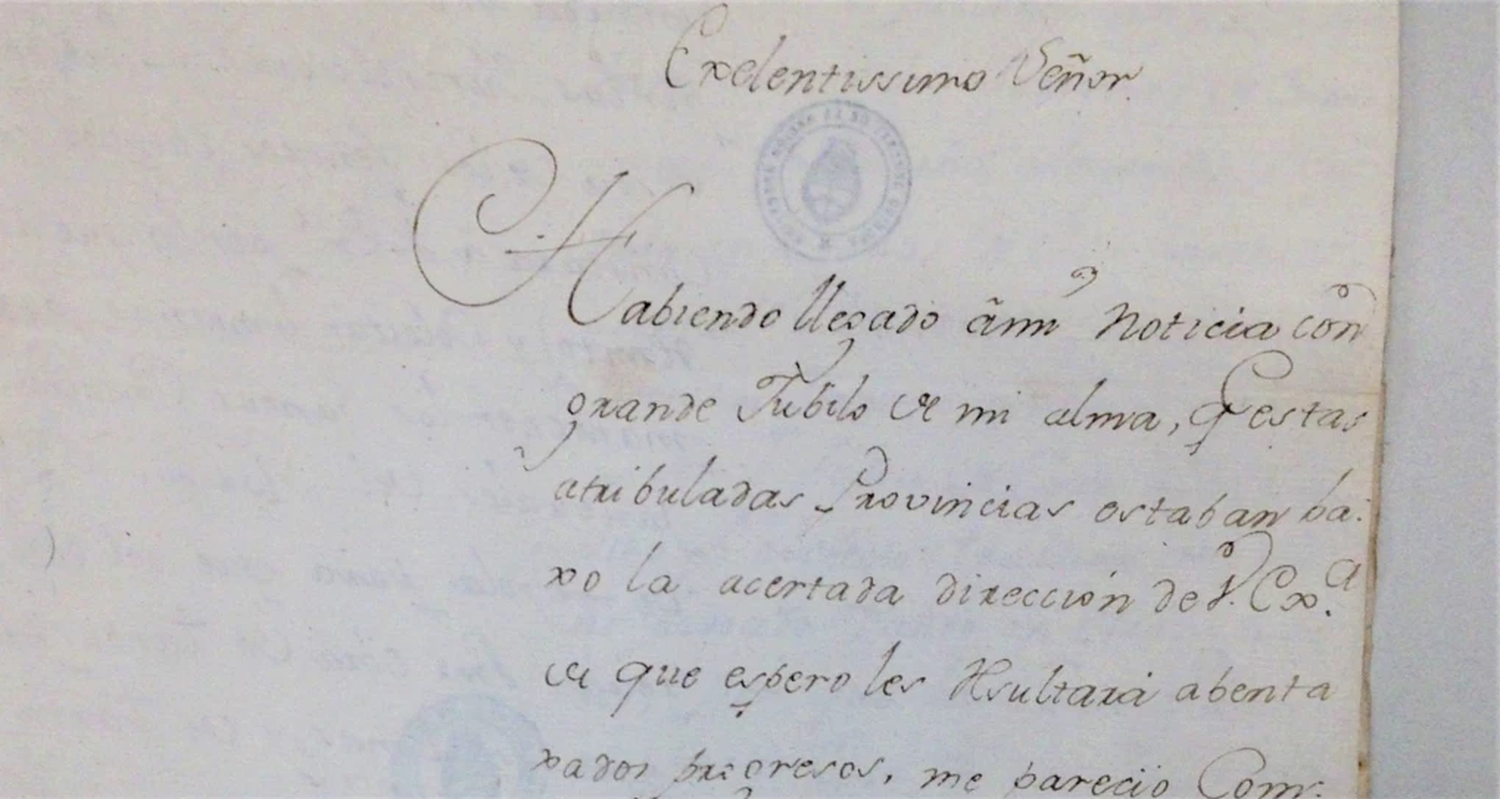 Exelentissimo Señor.
Habiendo llegado âmi Noticia con
grande Jubilo de mi alma, q estas
atribuladas Provincias estaban ba.
xo la acertada dirección de V. Ex.ª
de que espero les Resultará abenta
xados progresos, me parecio Com.